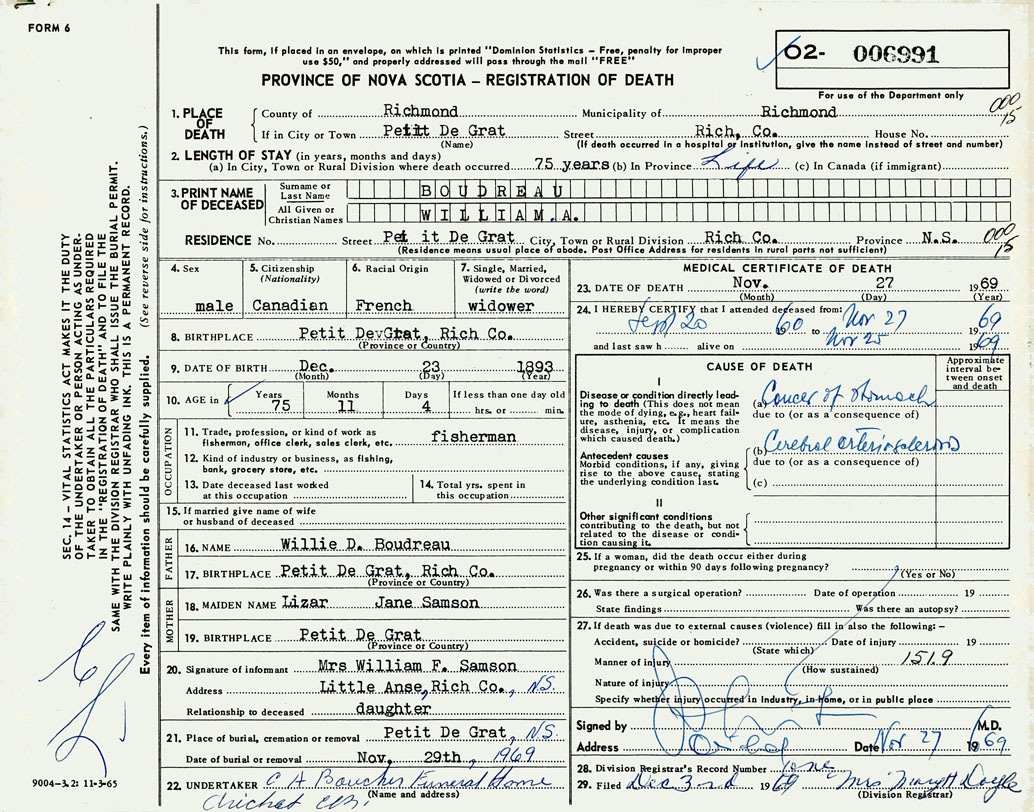 FORM 6
This form, if placed in an envelope, on which is printed "Dominion Statistics – Free, penalty for improper
use $50," and properly addressed will pass through the mail "FREE"
PROVINCE OF NOVA SCOTIA – REGISTRATION OF DEATH
02- 006991
For use of the Department only
000
15
1. PLACE OF DEATH
County of Richmond Municipality of Richmond
If in City or Town Petit De Grat Street Rich, Co. House No.
(Name) (If death occurred in a hospital or institution, give the name instead of street and number)
2. LENGTH OF STAY (in years, months and days)
(a) In City, Town or Rural Division where death occurred 75 years (b) In Province Life (c) In Canada (if immigrant)
3. PRINT NAME OF DECEASED
Surname or Last Name BOUDREAU
All Given or Christian Names WILLIAM.A.
RESIDENCE No. Street Pet it De Grat City, Town or Rural Division Rich Co. Province N.S. 000
15
(Residence means usual place of abode. Post Office Address for residents in rural parts not sufficient)
4. Sex
male
5. Citizenship
(Nationality)
Canadian
6. Racial Origin
French
7. Single, Married,
Widowed or Divorced
(write the word)
widower
8. BIRTHPLACE Petit De Grat, Rich Co.
(Province or Country)
9. DATE OF BIRTH Dec. 23 1893
(Month) (Day) (Year)
10. AGE in
Years 75
Months 11
Days 4
If less than one day old
hrs. or min.
OCCUPATION
11. Trade, profession, or kind of work as
fisherman, office clerk, sales clerk, etc. fisherman
12. Kind of industry or business, as fishing,
bank, grocery store, etc.
13. Date deceased last worked
at this occupation
14. Total yrs. spent in
this occupation
15. If married give name of wife
or husband of deceased
FATHER
16. NAME Willie D. Boudreau
17. BIRTHPLACE Petit De Grat, Rich Co.
(Province or Country)
MOTHER
18. MAIDEN NAME Lizar Jane Samson
19. BIRTHPLACE Petit De Grat
(Province or Country)
20. Signature of informant Mrs William F. Samson
Address Little Anse, Rich Co., N.S.
Relationship to deceased daughter
21. Place of burial, cremation or removal Petit De Grat, N.S.
Date of burial or removal Nov, 29th, 1969
22. UNDERTAKER C A Boucher Funeral Home
(Name and address)
MEDICAL CERTIFICATE OF DEATH
23. DATE OF DEATH Nov. 27 1969
(Month) (Day) (Year)
24. I HEREBY CERTIFY that I attended deceased from:
Sept 20 1960 to Nov 27 1969
and last saw h alive on Nov 25 1969
CAUSE OF DEATH
Approximate
interval be-
tween onset
and death
I
Disease or condition directly lead-
ing to death (This does not mean
the mode of dying, e.g., heart fail-
ure, asthenia, etc. It means the
disease, injury, or complication
which caused death.)
(a) Cancer of stomach
due to (or as a consequence of)
Antecedent causes
Morbid conditions, if any, giving
rise to the above cause, stating
the underlying condition last.
(b) Cerebral arteriosclerosis
due to (or as a consequence of)
(c)
II
Other significant conditions
contributing to the death, but not
related to the disease or condi-
tion causing it.
25. If a woman, did the death occur either during
pregnancy or within 90 days following pregnancy?
(Yes or No)
26. Was there a surgical operation? Date of operation 19
State findings Was there an autopsy?
27. If death was due to external causes (violence) fill in also the following: –
Accident, suicide or homicide? Date of injury 19
(State which)
Manner of injury 151.9
(How sustained)
Nature of injury
Specify whether injury occurred in Industry, in home, or in public place
Signed by M.D.
Address Date Nov 27 1969
28. Division Registrar's Record Number
29. Filed Dec 3rd 1969 Mrs Doyle
(Division Registrar)
SEC. 14 – VITAL STATISTICS ACT MAKES IT THE DUTY
OF THE UNDERTAKER OR PERSON ACTING AS UNDER-
TAKER TO OBTAIN ALL THE PARTICULARS REQUIRED
IN THE "REGISTRATION OF DEATH" AND TO FILE THE
SAME WITH THE DIVISION REGISTRAR WHO SHALL ISSUE THE BURIAL PERMIT.
WRITE PLAINLY WITH UNFADING INK. THIS IS A PERMANENT RECORD.
Every item of information should be carefully supplied. (See reverse side for instructions.)
9004–3.2: 11-3-65